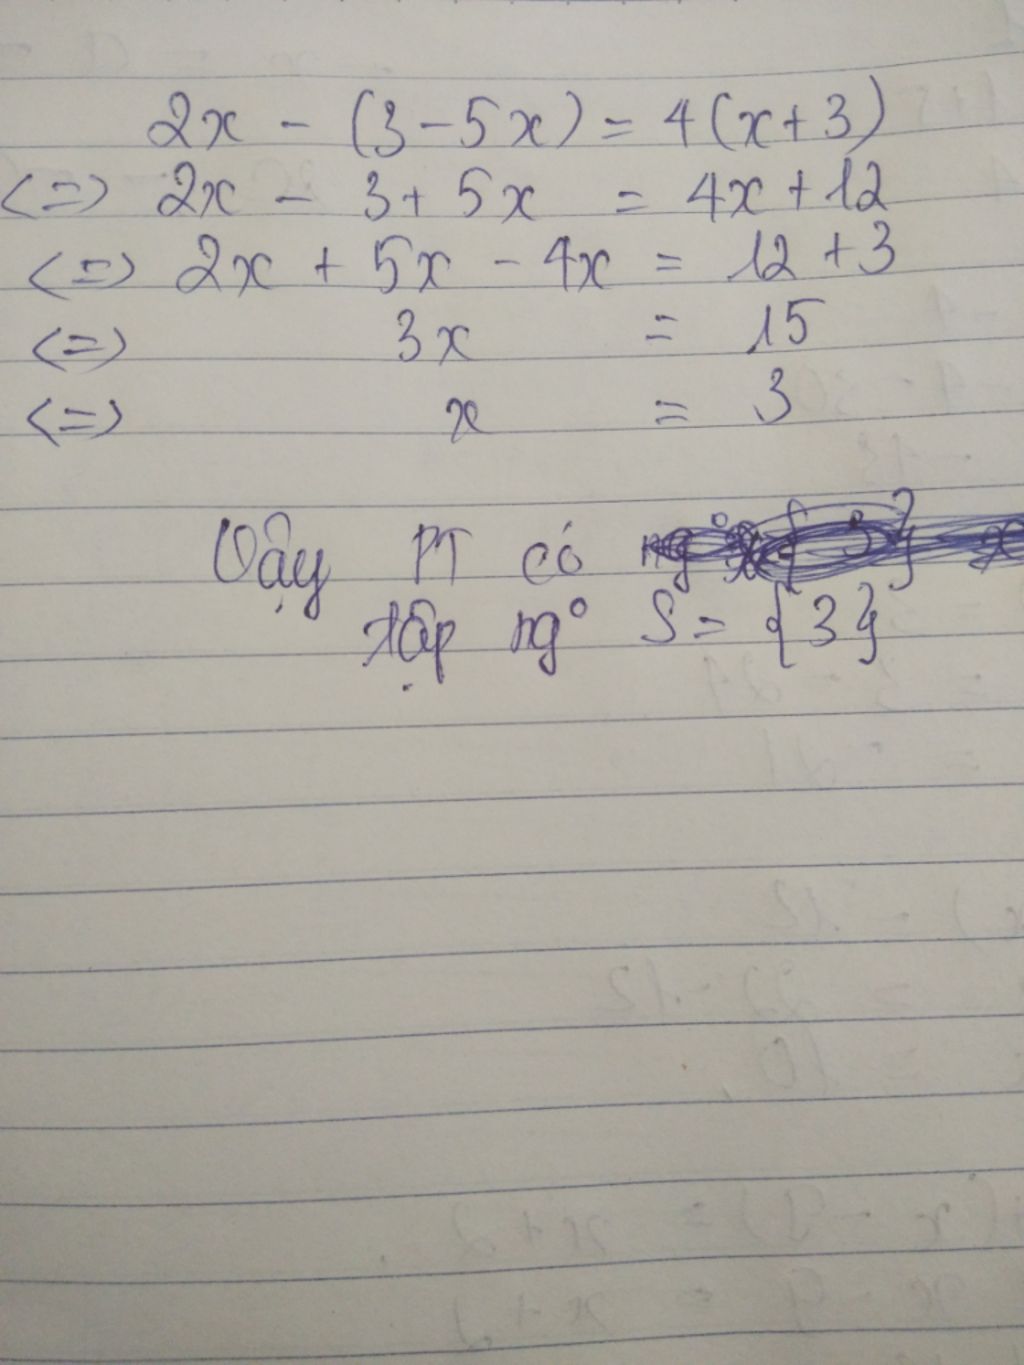 2x - (3-5x) = 4(x+3)
<=> 2x - 3+ 5x = 4x+12
<=> 2x + 5x - 4x = 12 +3
<=> 3x = 15
<=> x = 3
Vậy PT có
tập ng° S= {3}